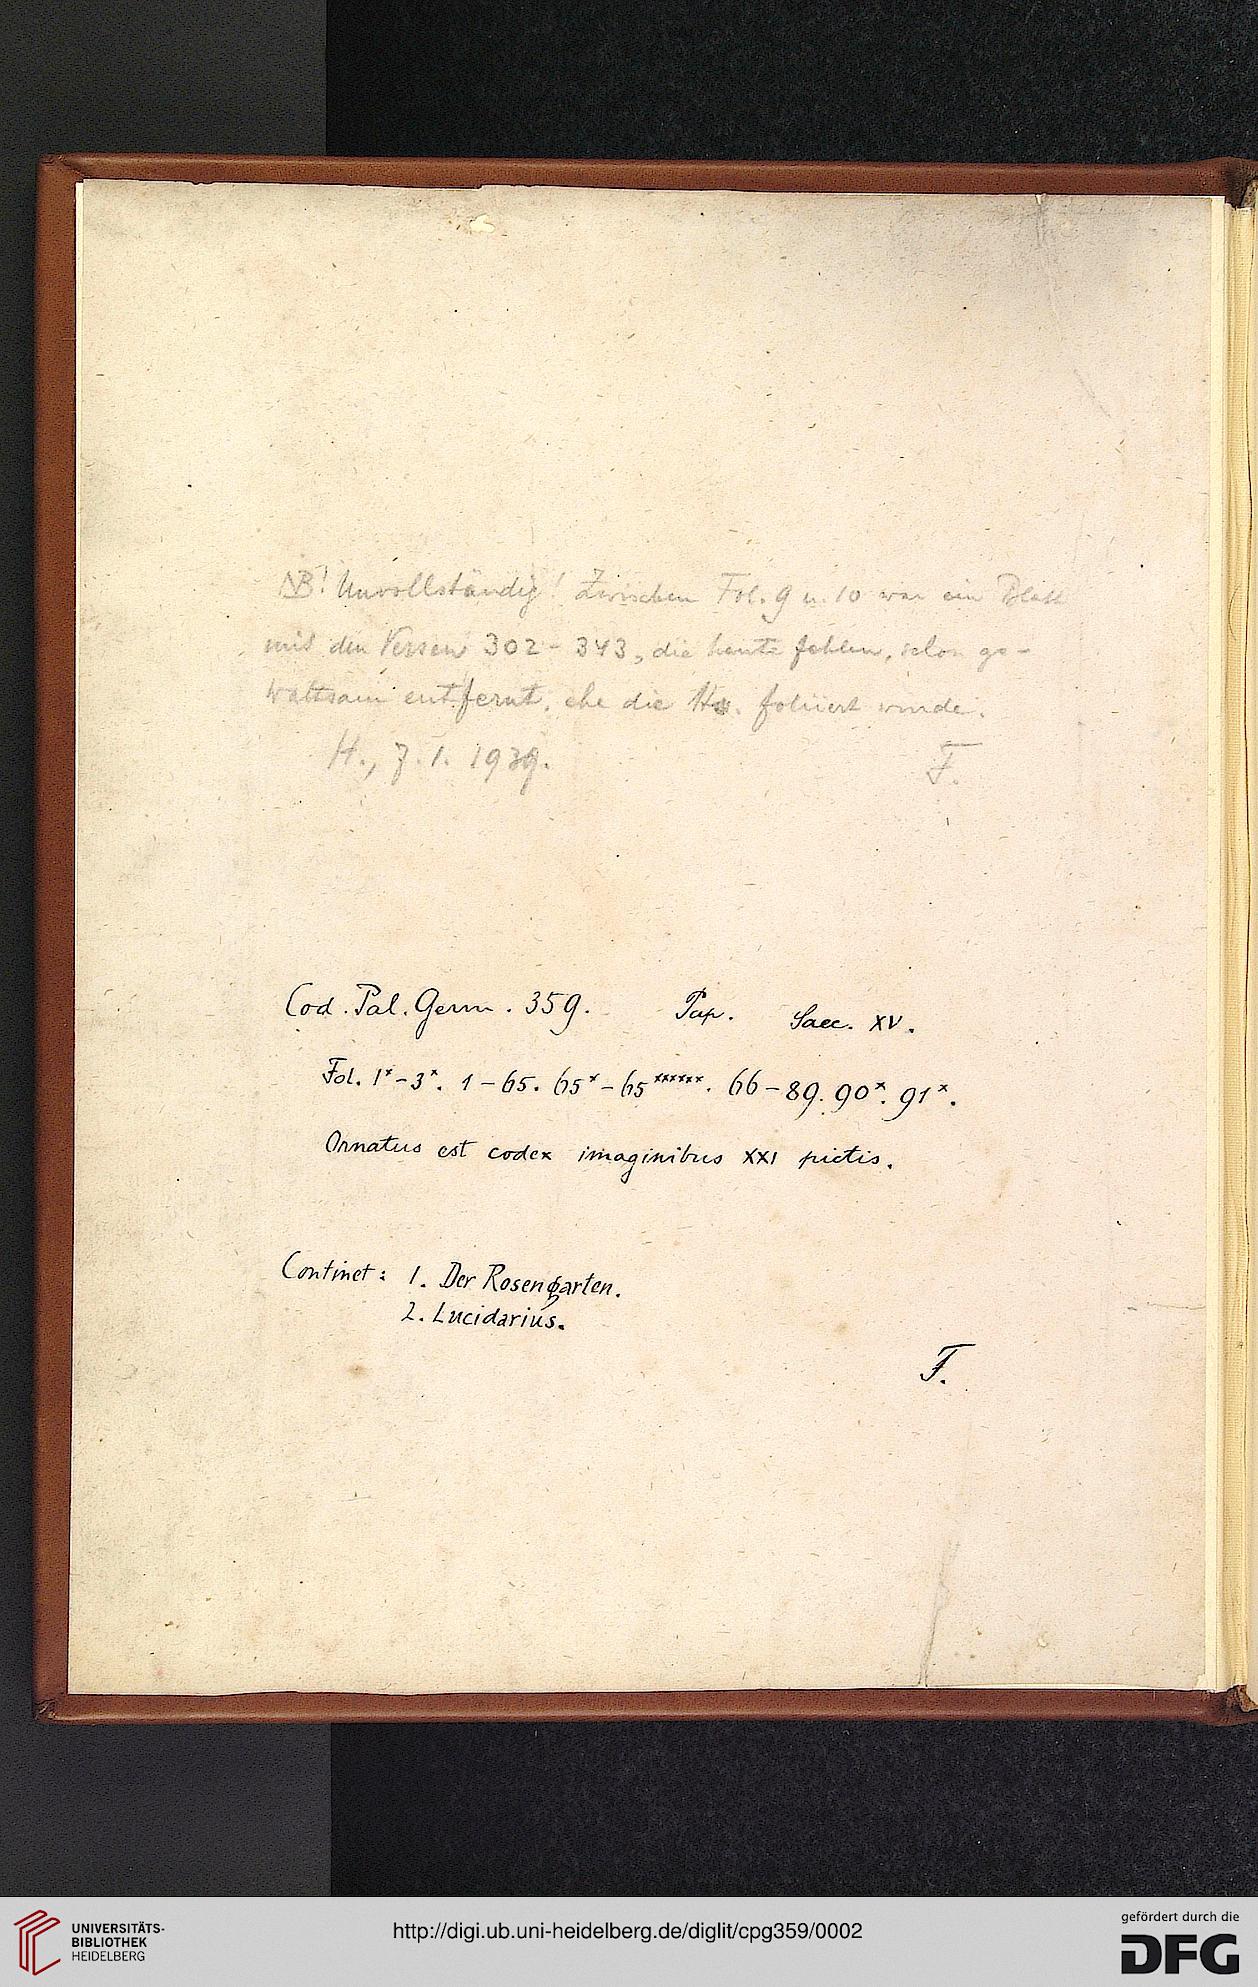 NB! Unvollständig! Zwischen Fol. 9 u. 10 war ein Blatt
mit den Versen 302 - 343, die heute fehlen, schon ge-
waltsam entfernt, ehe die Hs. foliiert wurde.
H., 7. 1. 1939. F.
Cod. Pal. Germ. 359. Pap. Saec. XV.
Fol. 1*-3*. 1-65. 65*-65******. 66-89. 90*. 91*.
Ornatus est codex imaginibus XXI pictis.
Continet: 1. Der Rosengarten.
2. Lucidarius.
F.
UNIVERSITÄTS-
BIBLIOTHEK
HEIDELBERG
http://digi.ub.uni-heidelberg.de/diglit/cpg359/0002
gefördert durch die
DFG